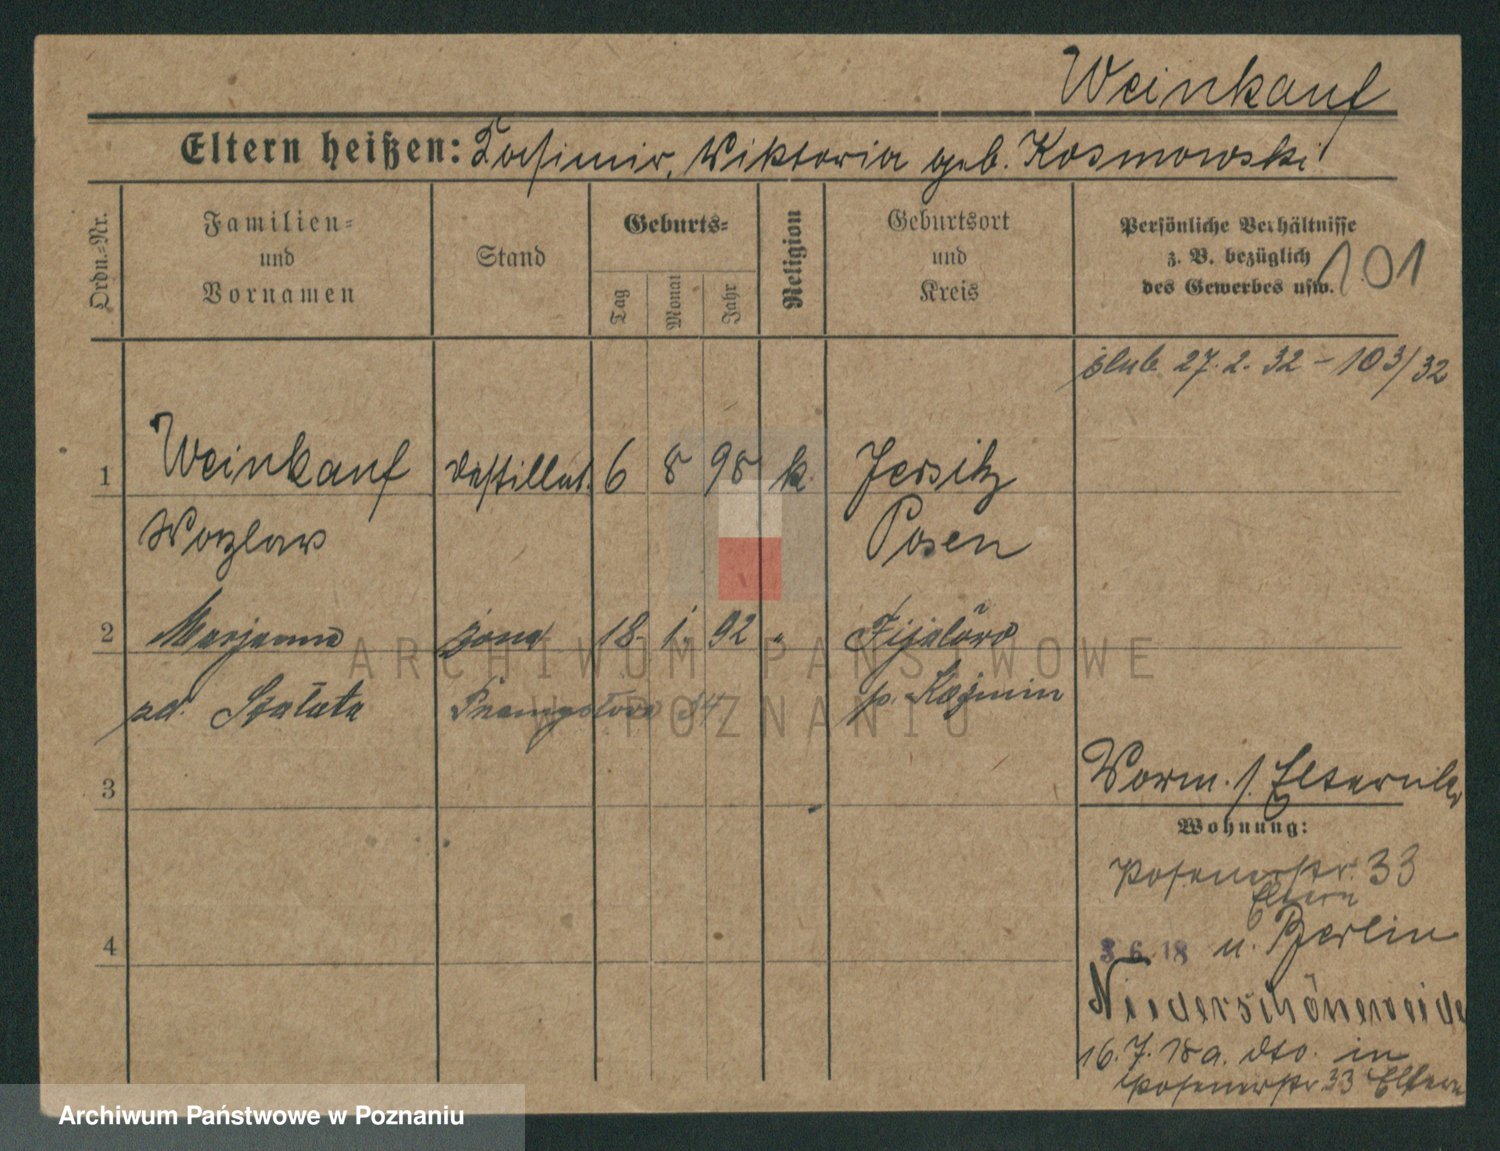 Weinkauf
Eltern heißen: Kasimir, Viktoria geb. Kosmowski
Ordn.-Nr.
Familien- und Vornamen
Stand
Geburts-
Tag
Monat
Jahr
Religion
Geburtsort und Kreis
Persönliche Verhältnisse z. B. bezüglich des Gewerbes usw.
101
ślub 27. 2. 32 – 103/32
1 Weinkauf Destillat. 6 8 98 k. Jersitz
Wazlaw Posen
2 Marjanna żona 18. 1. 92 " Fijałów
zd. Szaława Przemysłowa 34 p. Koźmin
3
Vorm. s. Elternk
Wohnung:
Posenerstr. 33
Eltern
4
3 6. 18 n. Berlin
Niederschöneweide
16. 7. 18 a. dto. in
Posenerstr 33 Eltern
ARCHIWUM PAŃSTWOWE
W POZNANIU
Archiwum Państwowe w Poznaniu